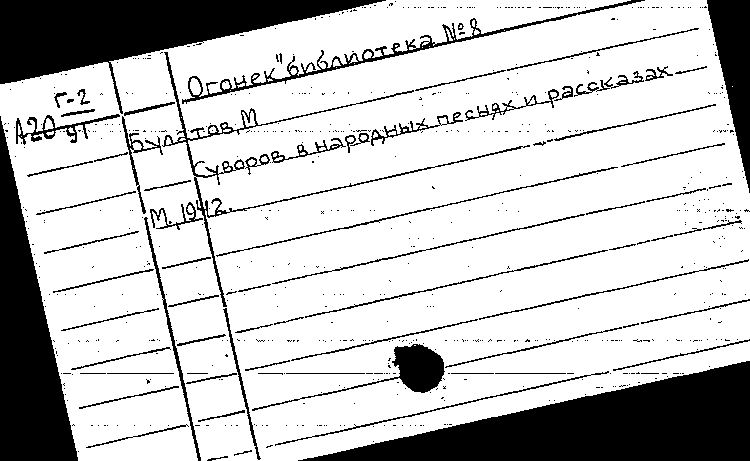 Огонек" библиотека №8
А20 Г-2
91
Булатов, М
Суворов в народных песнях и рассказах
М., 1942.